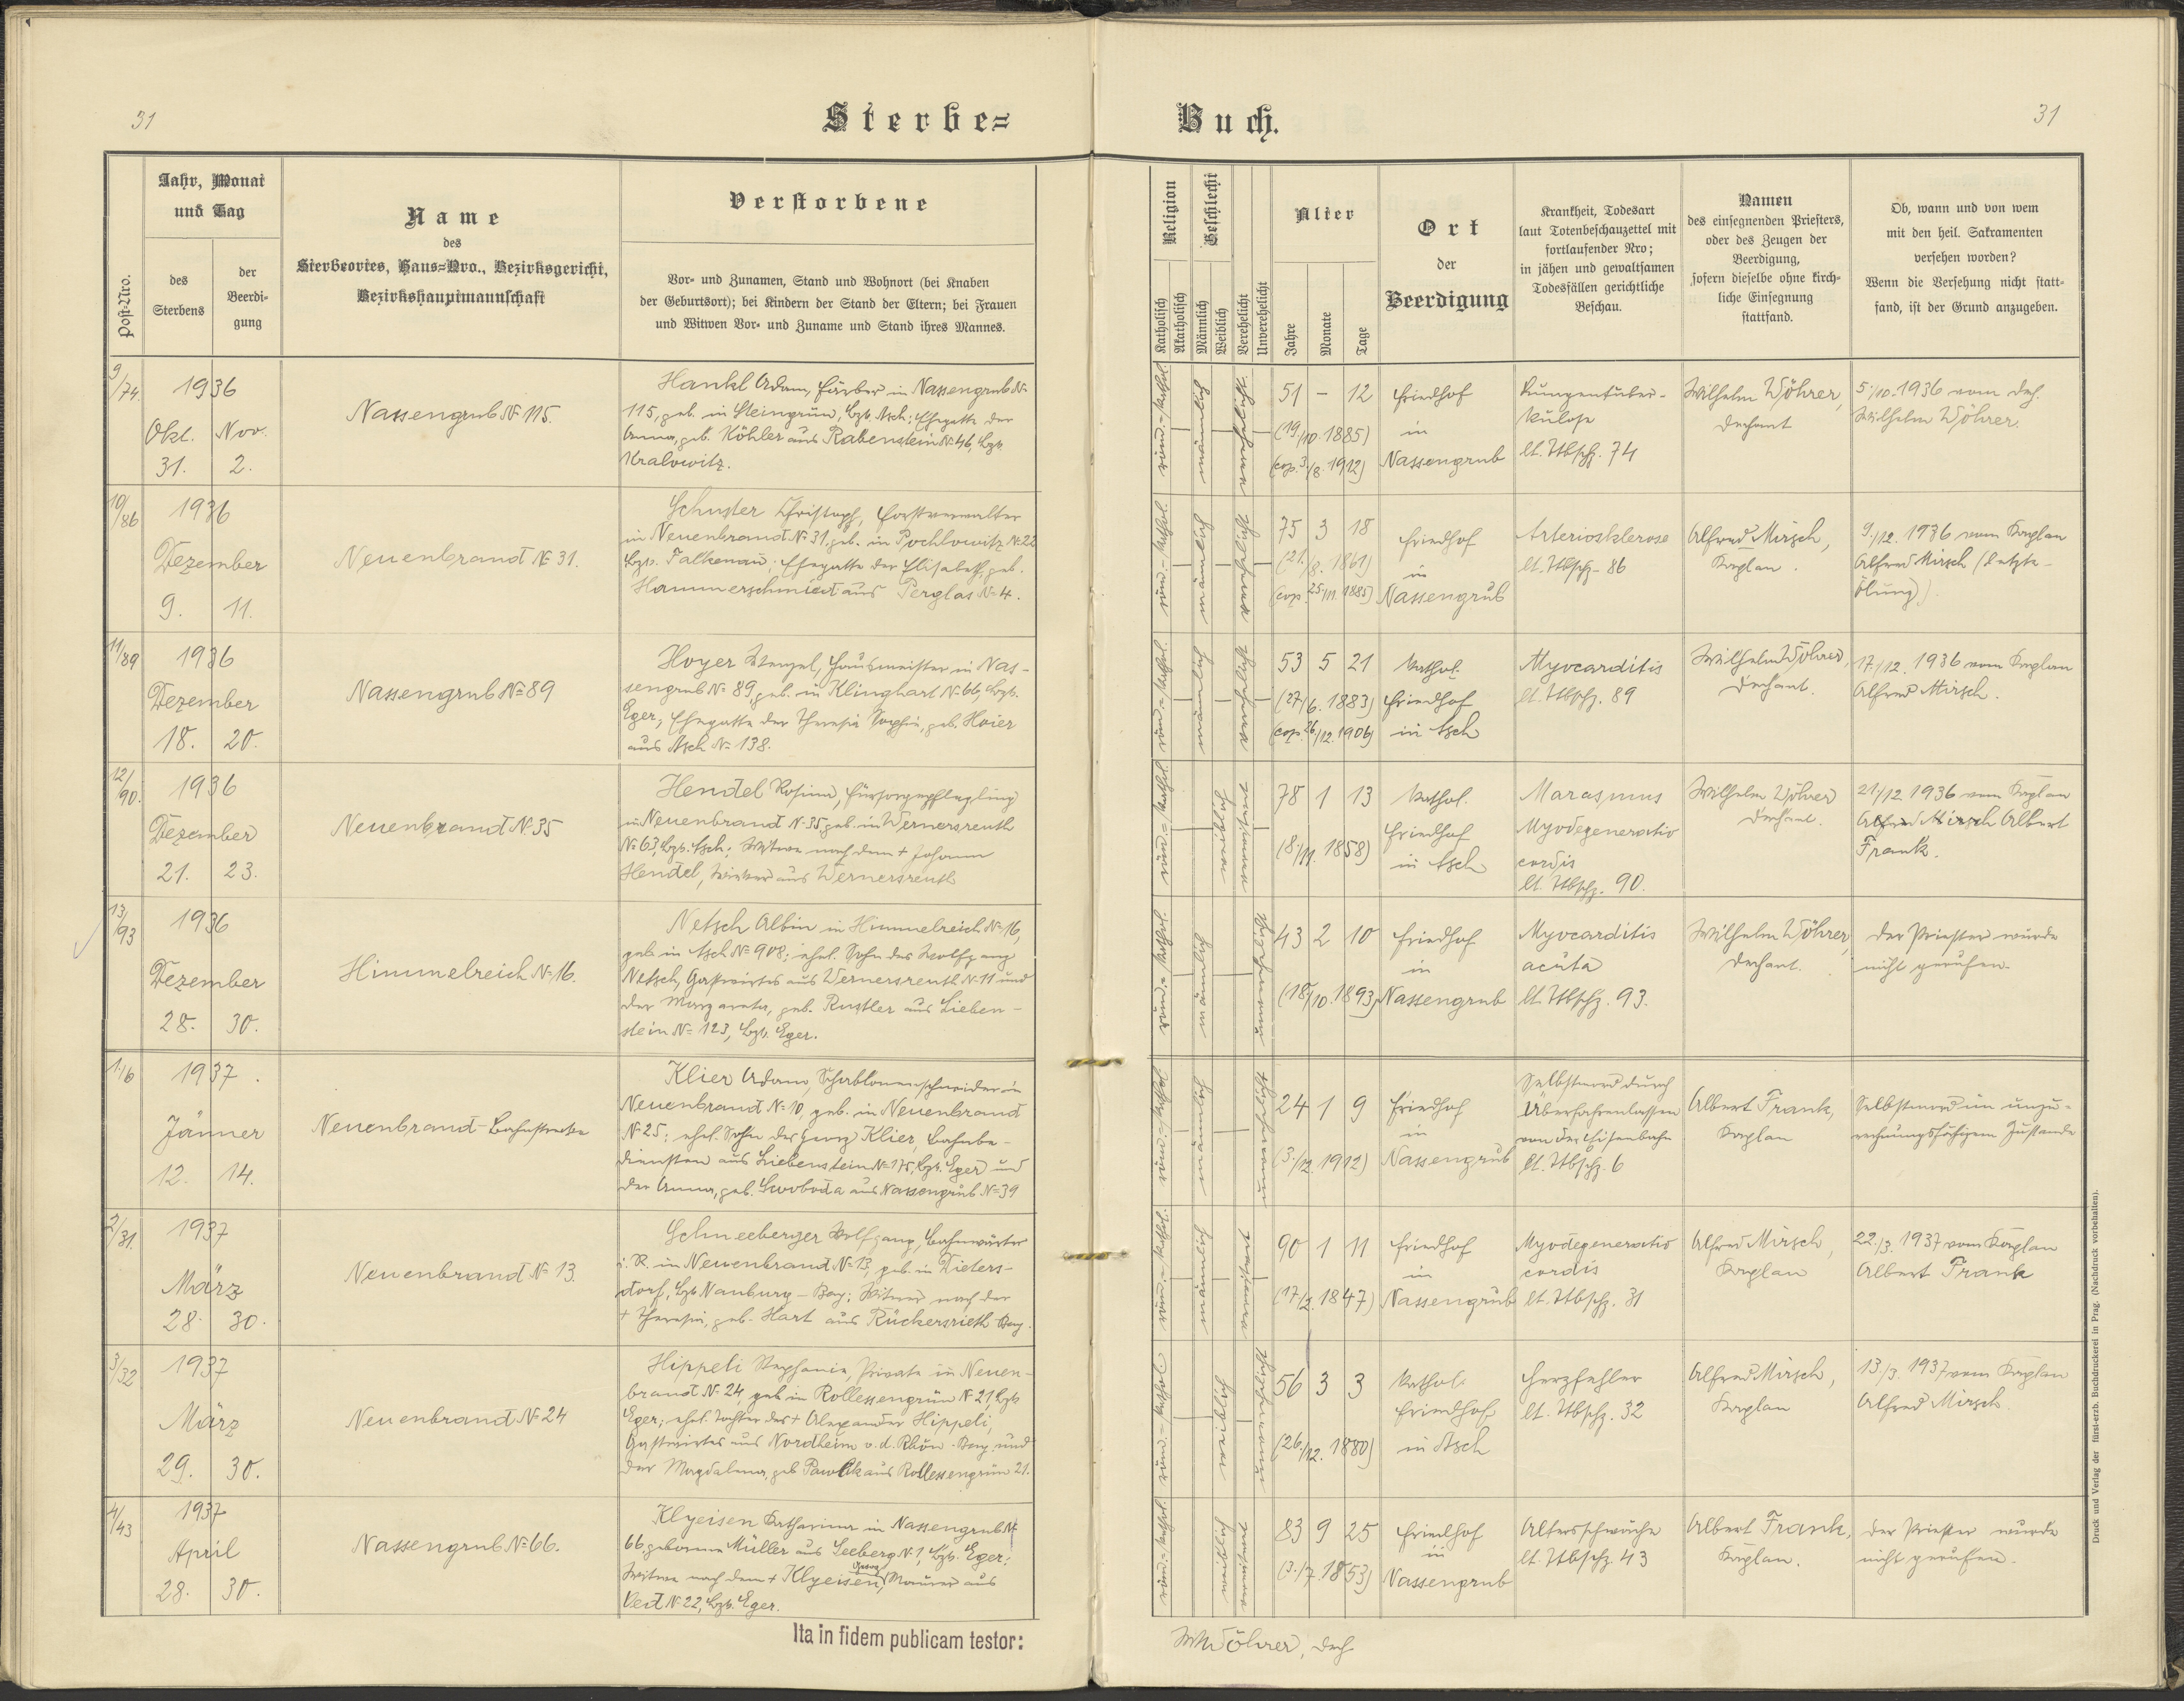 31
Sterbe=
Buch.
31
Post-Nro.
Jahr, Monat
und Tag
des
Sterbens
der
Beerdi-
gung
Name
des
Sterbeortes, Haus=Nro., Bezirksgericht,
Bezirkshauptmannschaft
Verstorbene
Vor- und Zunamen, Stand und Wohnort (bei Knaben
der Geburtsort); bei Kindern der Stand der Eltern; bei Frauen
und Witwen Vor- und Zuname und Stand ihres Mannes.
Religion
Katholisch
Akatholisch
Geschlecht
Männlich
Weiblich
Verehelicht
Unverehelicht
Alter
Jahre
Monate
Tage
Ort
der
Beerdigung
Krankheit, Todesart
laut Totenbeschauzettel mit
fortlaufender Nro;
in jähen und gewaltsamen
Todesfällen gerichtliche
Beschau.
Namen
des einsegnenden Priesters,
oder des Zeugen der
Beerdigung,
sofern dieselbe ohne kirch-
liche Einsegnung
stattfand.
Ob, wann und von wem
mit den heil. Sakramenten
versehen worden?
Wenn die Versehung nicht statt-
fand, ist der Grund anzugeben.
9/74.
1936
Okt. Nov.
31. 2.
Nassengrub № 115.
Hankl Adam, Färber in Nassengrub №
115, geb. in Steingrün, Bzk. Asch; Ehegatte der
Anna, geb. Köhler aus Rabenstein № 46, Bzk.
Kralowitz.
röm.-kathol.
männlich
verehelicht
51 – 12
(19./10. 1885)
(cop. 3./8. 1912)
Friedhof
in
Nassengrub
Lungentuber-
kulose
lt. Tbschz. 74
Wilhelm Wöhrer,
Dechant
5./10. 1936 vom Dech.
Wilhelm Wöhrer.
10/86
1936
Dezember
9. 11.
Neuenbrand № 31.
Schuster Christoph, Forstverwalter
in Neuenbrand № 31, geb. in Pochlowitz № 22
Bzk. Falkenau; Ehegatte der Elisabeth, geb.
Hammerschmiedt aus Perglas № 4.
röm.-kathol.
männlich
verehelicht
75 3 18
(21./8. 1861)
(cop. 25./11. 1885)
Friedhof
in
Nassengrub
Arteriosklerose
lt. Tbschz. 86
Alfred Mirsch,
Kaplan.
9./12. 1936 vom Kaplan
Alfred Mirsch (letzte
Ölung).
11/89
1936
Dezember
18. 20.
Nassengrub № 89
Hoyer Wenzel, Hausmeister in Nas-
sengrub № 89, geb. in Klinghart № 66, Bzk.
Eger, Ehegatte der Theresia Sophie, geb. Hoier
aus Asch № 138.
röm.-kathol.
männlich
verehelicht
53 5 21
(27/6. 1883)
(cop. 26./12. 1906)
Kathol.
Friedhof
in Asch
Myocarditis
lt. Tbschz. 89
Wilhelm Wöhrer,
Dechant.
17./12. 1936 vom Kaplan
Alfred Mirsch.
12/90.
1936
Dezember
21. 23.
Neuenbrand № 35
Hendel Rosina, Fürsorgepflegling
in Neuenbrand № 35 geb. in Wernersreuth
№ 63, Bzk. Asch; Witwe nach dem + Johann
Hendel, Weber aus Wernersreuth
röm.-kathol.
weiblich
verwitwet
78 1 13
(8./11. 1858)
Kathol.
Friedhof
in Asch
Marasmus
Myodegeneratio
cordis
lt. Tbschz. 90.
Wilhelm Wöhrer
Dechant.
21/12 1936 vom Kaplan
Alfred Mirsch Albert
Frank.
13/93
1936
Dezember
28. 30.
Himmelreich № 16.
Netsch Albin in Himmelreich № 16,
geb. in Asch № 908; ehel. Sohn des Wolfgang
Netsch, Gastwirtes aus Wernersreuth № 11 und
der Margareta, geb. Rustler aus Lieben-
stein № 123, Bzk. Eger.
röm.-kathol.
männlich
unverehelicht
43 2 10
(18/10. 1893)
Friedhof
in
Nassengrub
Myocarditis
acuta
lt. Tbschz. 93.
Wilhelm Wöhrer,
Dechant.
Der Priester wurde
nicht gerufen.
1./6
1937.
Jänner
12. 14.
Neuenbrand-Bahnstrecke
Klier Adam, Schablonenschneider in
Neuenbrand № 10, geb. in Neuenbrand
№ 25; ehel. Sohn des Georg Klier, Bahnbe-
diensten aus Liebenstein № 175, Bzk. Eger und
der Anna, geb. Swoboda aus Nassengrub № 39
röm.-kathol.
männlich
unverehelicht
24 1 9
(3./12. 1912)
Friedhof
in
Nassengrub
Selbstmord durch
Überfahrenlassen
von der Eisenbahn
lt. Tbschz. 6
Albert Frank,
Kaplan
Selbstmord im unzu-
rechnungsfähigem Zustande
2/31.
1937
März
28. 30.
Neuenbrand № 13.
Schneeberger Wolfgang, Bahnwärter
i. R. in Neuenbrand № 13, geb. in Dieters-
dorf, Bzk Nauburg – Bay; Witwer nach der
+ Theresia, geb. Hart aus Rückersrieth Bay.
röm.-kathol.
männlich
verwitwet
90 1 11
(17/2. 1847)
Friedhof
in
Nassengrub
Myodegeneratio
cordis
lt. Tbschz. 31
Alfred Mirsch,
Kaplan
22./3. 1937 vom Kaplan
Albert Frank
3/32
1937
März
29. 30.
Neuenbrand № 24
Hippeli Stephanie, Private in Neuen-
brand № 24, geb. in Rollessengrün № 21, Bzk
Eger; ehel. Tochter des + Alexander Hippeli,
Gastwirtes aus Nordheim v. d. Rhön - Bay. und
der Magdalena, geb Pawlik aus Rollessengrün 21.
röm.-kathol.
weiblich
unverehelicht
56 3 3
(26./12. 1880)
Kathol.
Friedhof
in Asch
Herzfehler
lt. Tbschz. 32
Alfred Mirsch,
Kaplan
13./3. 1937 vom Kaplan
Alfred Mirsch.
4/43
1937
April
28. 30.
Nassengrub № 66.
Klyeisen Katharina in Nassengrub №
66, geborene Müller aus Seeberg № 1, Bzk. Eger;
Witwe nach dem + Klyeisen Georg, Maurer aus
№ 22, Bzk. Eger.
röm.-kathol.
weiblich
verwitwet
83 9 25
(3./7. 1853)
Friedhof
in
Nassengrub
Altersschwäche
lt. Tbschz. 43
Albert Frank,
Kaplan.
Der Priester wurde
nicht gerufen.
Ita in fidem publicam testor:
Wöhrer, Dech
Druck und Verlag der fürst-erzb. Buchdruckerei in Prag. (Nachdruck vorbehalten).